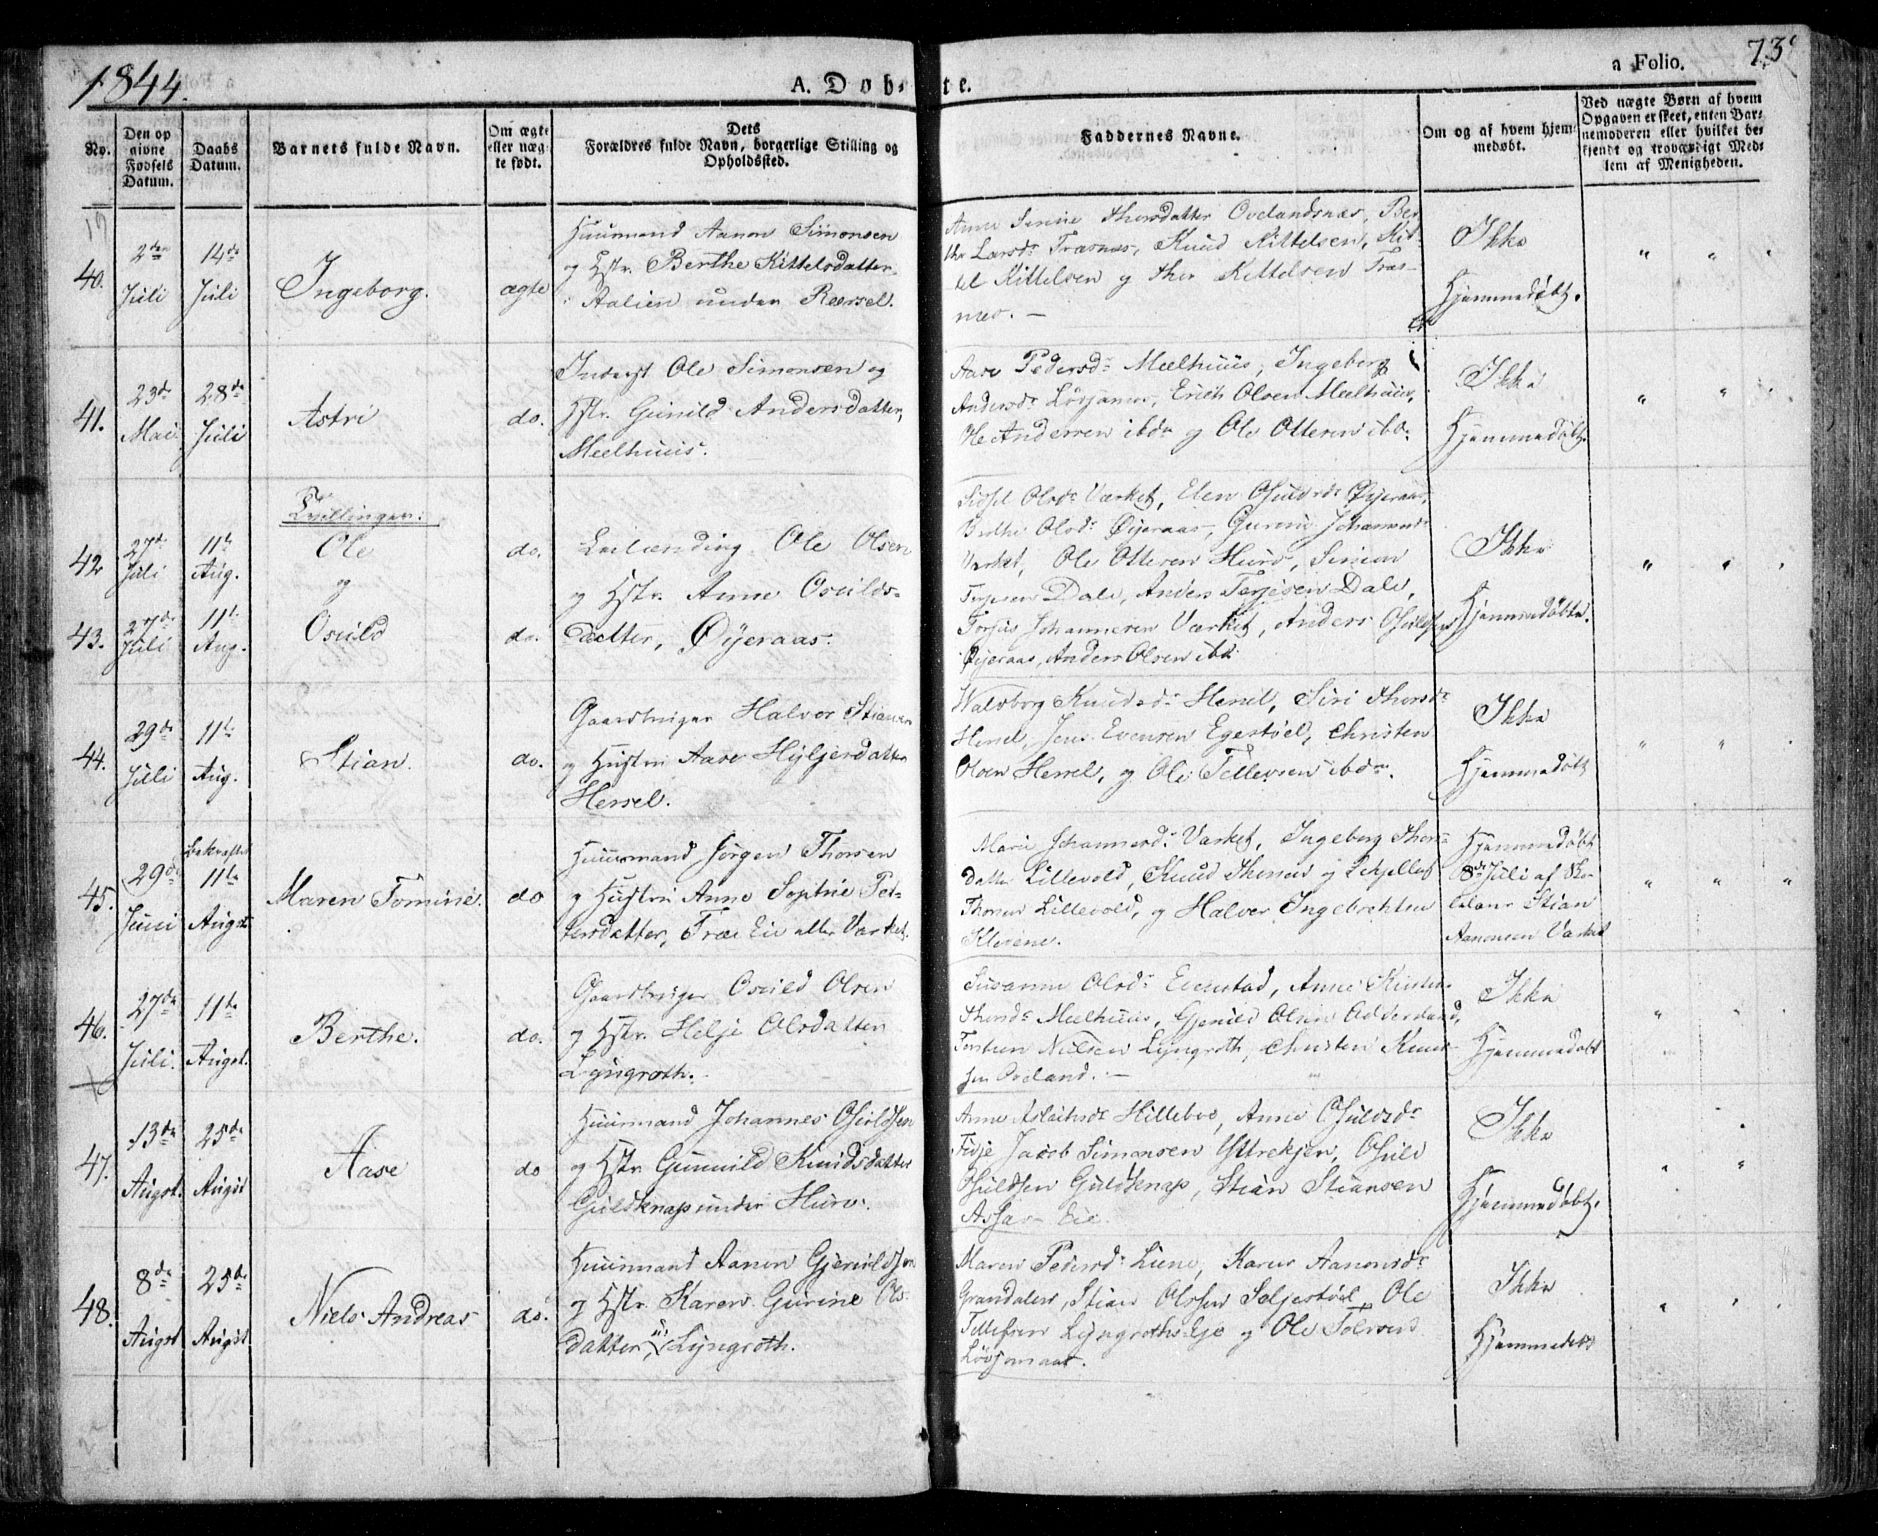 1844.
A. Døb-te.
a Folio. 73
No.
Den op givne Fødsels Datum.
Daabs Datum.
Barnets fulde Navn.
Om ægte eller uægte født.
Dets Forældres fulde Navn, borgerlige Stilling og Opholdssted.
Faddernes Navne.
Om og af hvem hjemmedøbt.
Ved uægte Børn af hvem Opgaven er skeet, enten Barnemoderen eller hvilket bekjendt og troværdigt Medlem af Menigheden.
40.
2den Juli
14de Juli
Ingeborg.
ægte
Huusmand Aanon Simonsen
og Hstr. Berthe Kittelsdatter
Aalien under Reersel.
Anne Sirine Thorsdatter Ovelandsnæs, Ber-
the Larsdr Træsnæs, Knud Kittelsen, Kit-
tel Kittelsen og Thor Kittelsen Træs-
næs. —
Ikke
Hjemmedøbt.
41.
23de Mai
28de Juli
Astri
do.
Inderst Ole Simonsen og
Hstr. Gunild Andersdatter,
Mælhuus.
Aase Pedersdr Mælhuus, Ingeborg
Andersdr Lövjomas, Erich Olsen Mælhuus,
Andersen ibdm og Ole Ottersen ibd.
Ikke
Hjemmedøbt.
Tvillinger:
42
27de Juli
11te Aug.
Ole
og
do.
43.
27de Juli
11te Aug.
Osuld
do.
Leilænding Ole Olsen
og Hstr. Anne Osulds-
datter, Øijeraas.
Sidsel Olsdr Værket, Elen Osuldsdr Øijeraas,
Berthe Olsdr Øijeraas, Gurine Johannesdr
Værket, Ole Ottersen Hurv, Simon
Terjesen Dale, Anders Terjesen Dale,
Torjus Johannesen Værket, Anders Osuldsen
Øijeraas, Anders Olsen ibd.
Ikke
Hjemmedøbte.
44.
29de Juli
11te Aug.
Stian.
do.
Gaardbruger Halvor Stiansen
og Hustru Aase Hyljersdatter
Hersel.
Walborg Knudsdr Hersel, Siri Thorsdr
Hersel, Jens Evensen Egestöel, Christen
Olsen Hersel, og Ole Tellevsen ibdm.
Ikke
Hjemmedøbt
45.
29de Juni
bekræftet
11te August
Maren Tomine.
do
Huusmand Jörgen Thorsen
og Hustru Anne Sophie Pet-
tersdatter, Træe Eie eller Værket.
Marie Johannesdr Værket, Ingeborg Thors-
datter Lillevold, Knud Thorsen og Tehjellef
Thorsen Lillevold, og Halvor Ingebrethsen
Klevene.
Hjemmedøbt
8de Juli af Sko-
lelærer Stian
Aanonsen Værket
46.
27de Juli.
11te August.
Berthe.
do.
Gaardbruger Osuld Olsen
og Hstr. Helje Olsdatter
Lyngroth.
Susanne Olsdr Evenstad, Anne Kirstine
Thorsdr Mælhuus, Gjeruld Olsen Odderland,
Torsten Nielsen Lyngroth, Christen Knud-
sen Oveland. —
Ikke
Hjemmedøbt
47.
13de August.
25de August
Aase
do
Huusmand Johannes Osuldsen
og Hstr. Gunnild Knudsdatter
Guldsknap under Hurv.
Anne Aslaksdr Hilleboe, Anne Osuldsdr
Tveje, Jacob Simonsen Yttrekjen, Osuld
Osuldsen Guldsknap, Stian Stiansen
Eie.
Ikke
Hjemmedøbt.
48.
8de August
25de August
Niels Andreas
do.
Huusmand Aanon Gjeruldsen
og Hstr. Karen Gurine Ols-
datter u: Lyngroth.
Maren Pedersdr Liene, Karen Aanonsdr
Grandalen, Stian Olsen Seljestöel, Ole
Tellefsen Lyngroths Eje og Ole Tolvsen
Lövjomaas.
Ikke
Hjemmedøbt